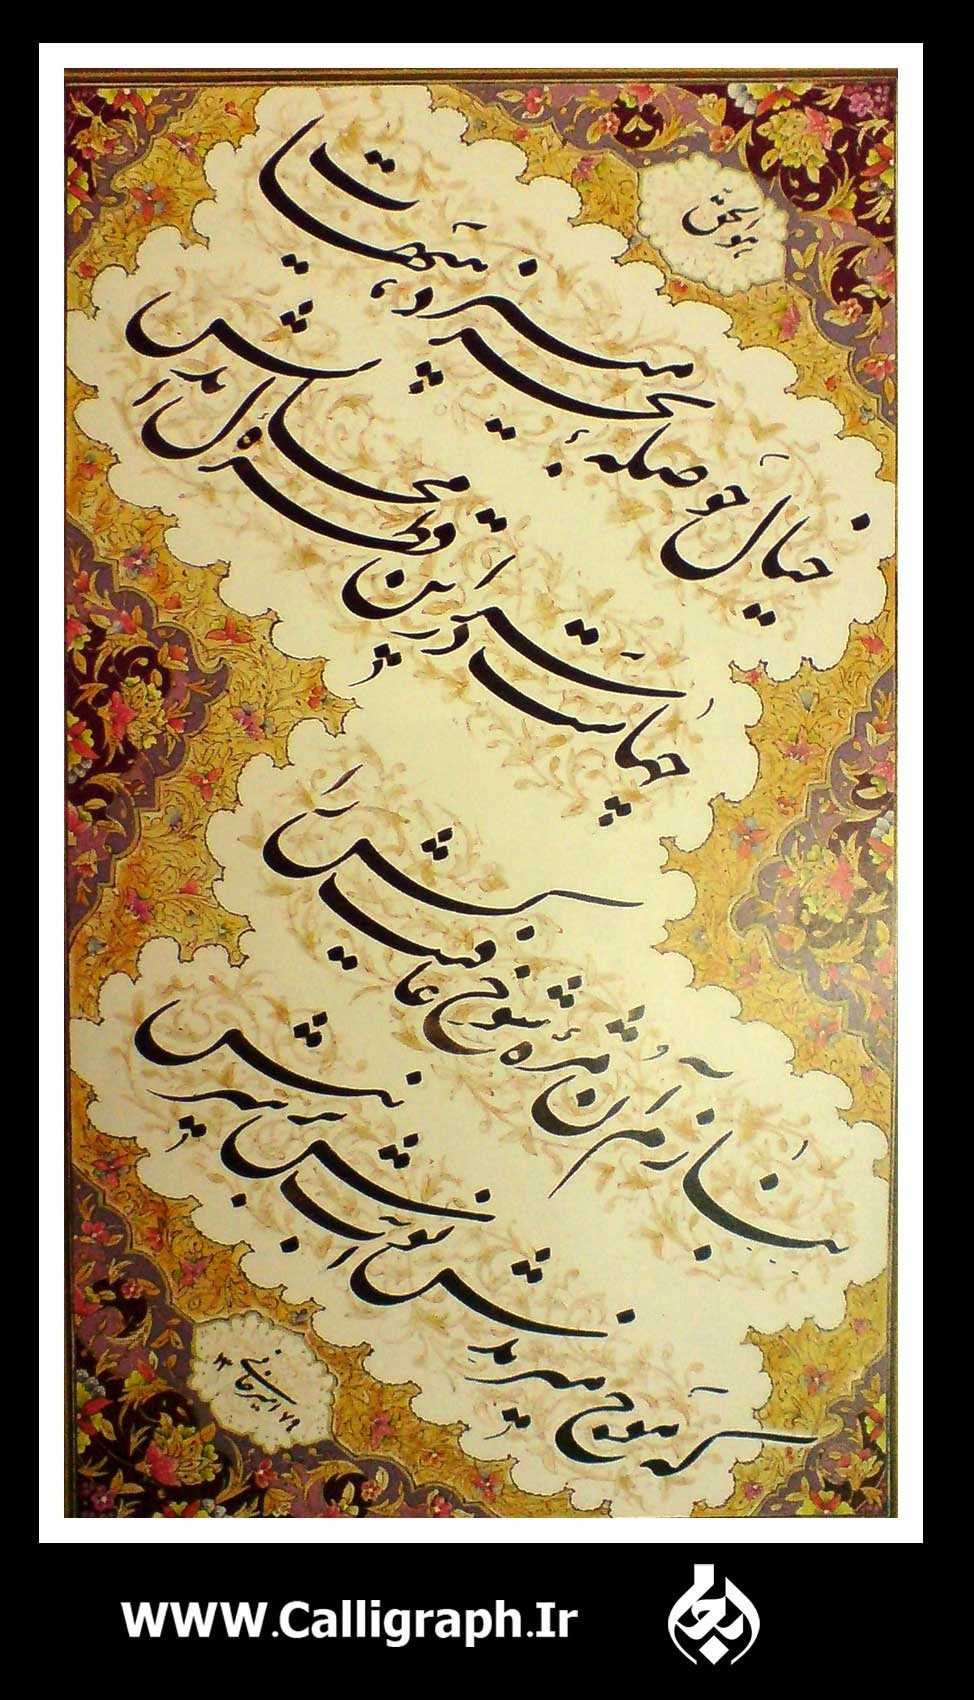 هوالحق
خیال حوصلهٔ بحر میپزد، هیهات
چهاست در سر این قطرهٔ محال اندیش
بنازم آن مژهٔ شوخ عافیت کش را
که موج میزندش آب نوش بر سر نیش
امیرخانی ۷۹
WWW.Calligraph.Ir